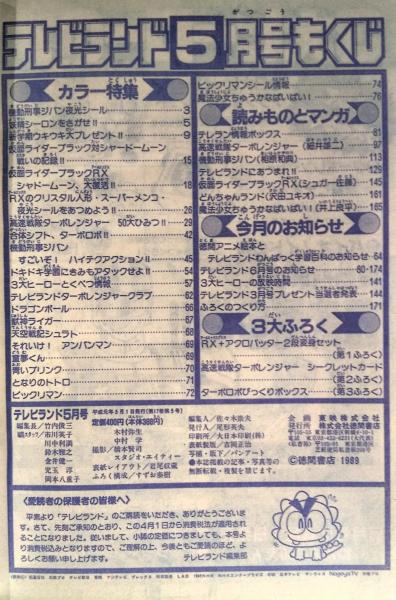 テレビランド5月号もくじ
カラー特集
機動刑事ジバン夜光シール 3
妖精シーロンをさがせ!! 5
新学期ウキウキ大プレゼント!! 9
仮面ライダーブラック対シャドームーン
戦いの記録!! 15
仮面ライダーブラックRX
シャドームーン、大復活!! 18
RXのクリスタル人形・スーパーメンコ・
夜光シールをあつめよう!! 26
高速戦隊ターボレンジャー 50大ひみつ!! 29
合体シフト、ターボロボ!! 42
機動刑事ジバン
すごいぞ! ハイテクアクション!! 45
ドキドキ学園にきみもアタックせよ!! 54
3大ヒーローとくべつ情報 57
テレビランドターボレンジャークラブ 62
ドラゴンボール 64
獣神ライガー 67
天空戦記シュラト 68
それいけ! アンパンマン 69
童夢くん 69
青いブリンク 70
となりのトトロ 71
ビックリマン 72
ビックリマンシール情報 74
魔法少女ちゅうかなぱいぱい! 76
読みものとマンガ
テレラン情報ボックス 81
高速戦隊ターボレンジャー(細井雄二) 97
機動刑事ジバン(相原和典) 113
テレビランドにあつまれ!! 129
仮面ライダーブラックRX(シュガー佐藤) 145
どんちゃんランド(沢田ユキオ) 161
魔法少女ちゅうかなぱいぱい!(井上良平) 165
今月のお知らせ
徳間アニメ絵本と
テレビランドわんぱっく学習百科のお知らせ 64
テレビランド6月号のお知らせ 80・174
3大ヒーローの放映時間 141
テレビランド3月号プレゼント当選者発表 144
ふろくのつくり方 171
3大ふろく
RX+アクロバッター2段変身セット
(第1ふろく)
高速戦隊ターボレンジャー シークレットカード
(第2ふろく)
ターボロボびっくりボックス (第3ふろく)
テレビランド5月号
平成元年5月1日発行(第17巻第5号)
定価400円(本体388円)
編集長/竹内俊三
嘱スタッフ/市川英子
川中利満
鈴木雅之
金井健一
児玉 淳
岡本八重子
木村弥生
中村 学
撮影/橋本賢司
スタジオ・エイティー
表紙レイアウト/岩尾収蔵
ふろく構成/すずお泰樹
編集人/佐々木崇夫
発行人/尾形英夫
印刷所/大日本印刷(株)
表紙印刷/吉岡正治
写植・版下/バンアート
●本誌掲載の記事・写真等の
無断転載・複製を禁じます。
企画 東映株式会社
発行所 株式会社徳間書店
©徳間書店 1989
<愛読者の保護者の皆様へ>
平素より「テレビランド」のご購読をいただき、ありがとうございま
す。さて、先刻ご承知のとおり、この4月1日から消費税法が適用され
ることになりました。従いまして、小誌の定価につきましても、本号よ
り消費税込みとなりますので、ご理解の上、今後ともご愛読のほど、よ
ろしくお願い申し上げます。
テレビランド編集部